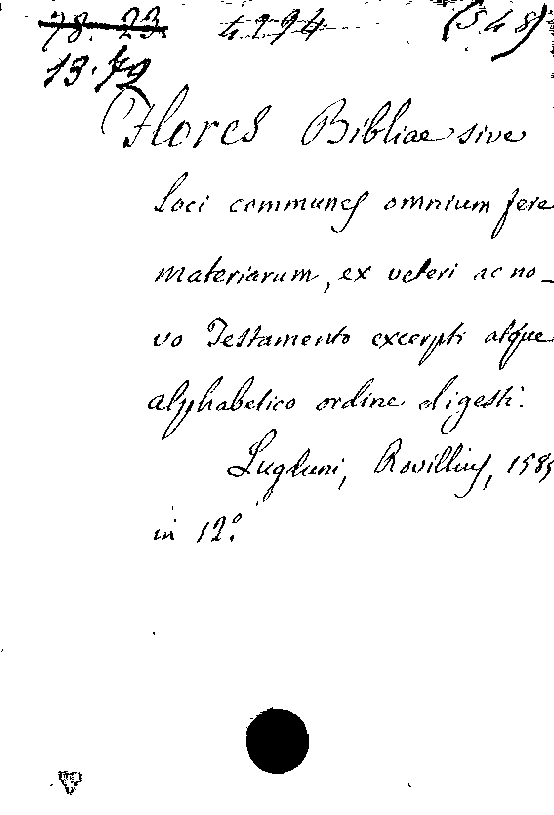 78. 23. 4294 (548)
13.79
Flores Bibliae sive
Loci communes omnium fere
materiarum, ex veteri ac no_
vo Testamento excerpti atque
alphabetico ordine digesti.
Lugduni, Rovillius, 1585
in 12º